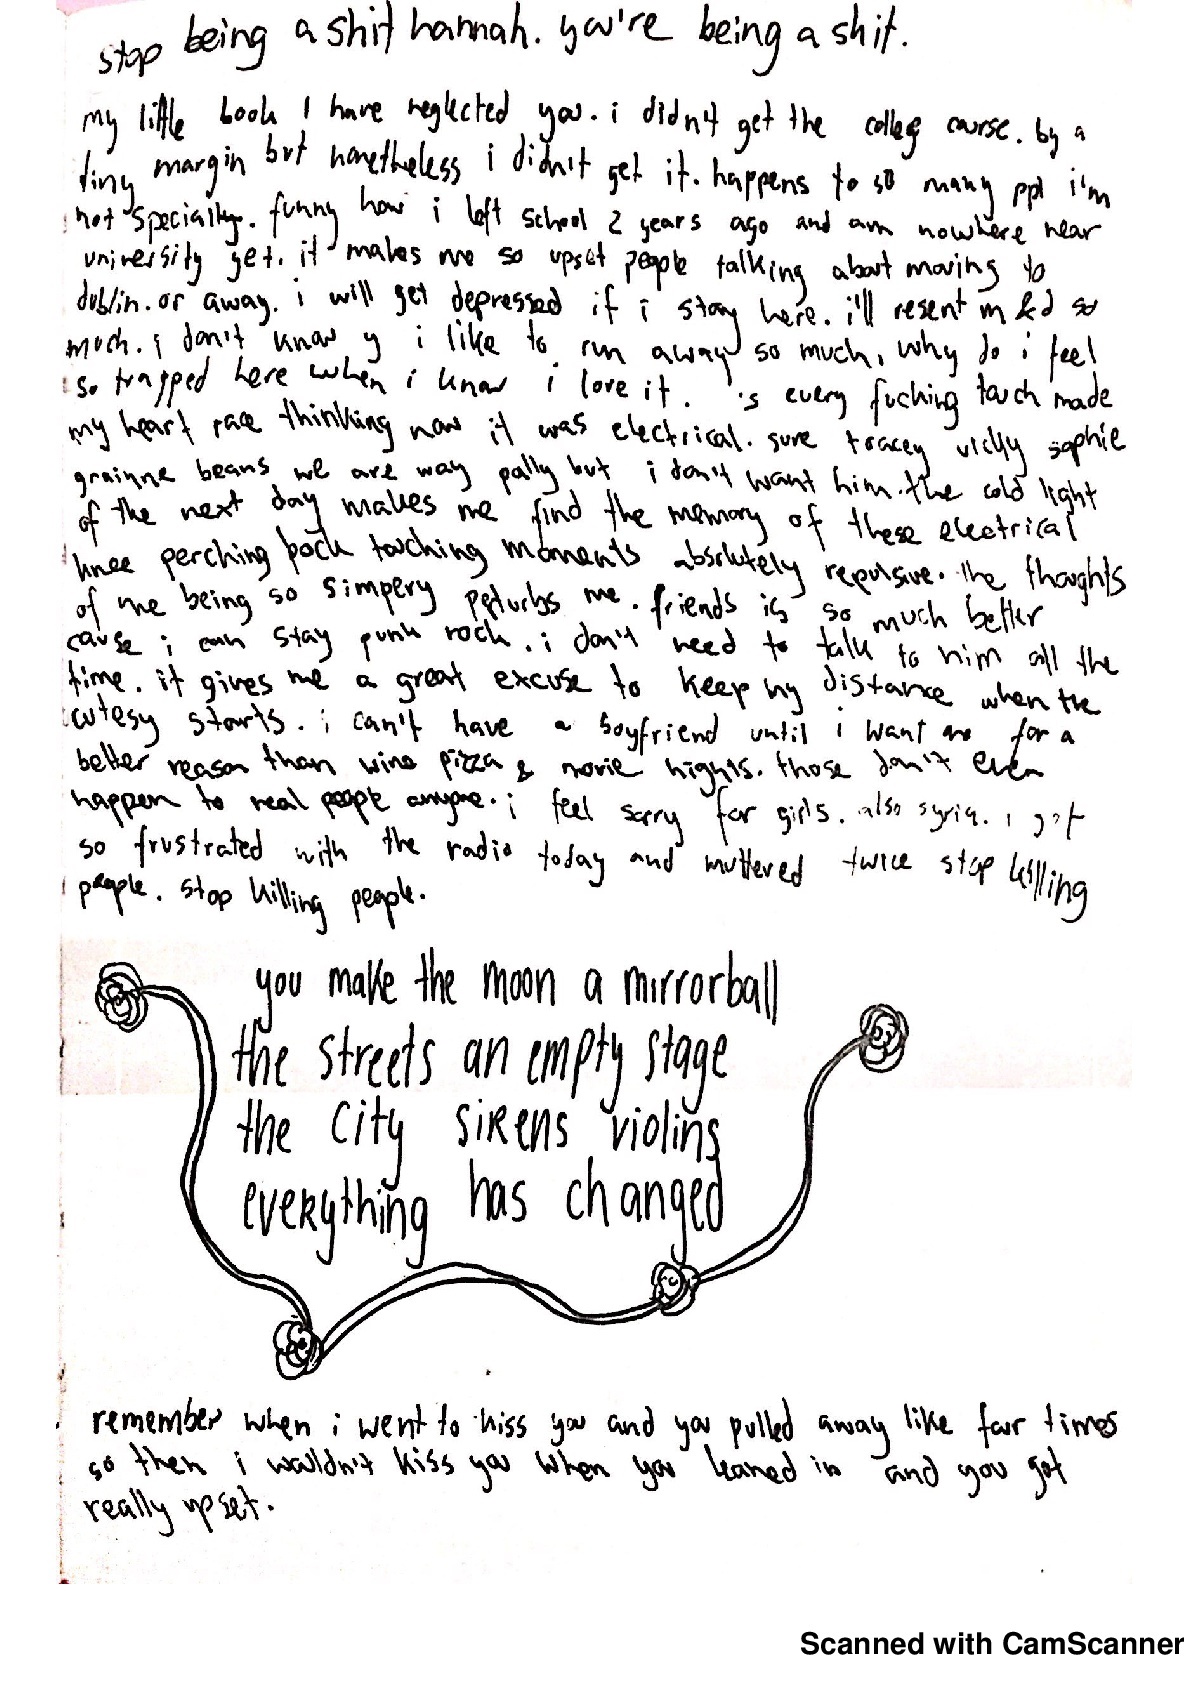 stop being a shit hannah. you're being a shit.
my little book I have neglected you. i didn't get the colleg course. by a
tiny margin but nonetheless i didn't get it. happens to so many ppl i'm
not specially. funny how i left school 2 years ago and am nowhere near
university yet. it makes me so upset people talking about moving to
dublin. or away. i will get depressed if i stay here. i'll resent m & d so
much. i don't know y i like to run away so much, why do i feel
so trapped here when i know i love it. 's every fucking touch made
my heart race thinking now it was electrical. sure tracey vicky sophie
grainne beans we are way pally but i don't want him. the cold light
of the next day makes me find the memory of these electrical
knee perching back touching moments absolutely repulsive. the thoughts
of me being so simpery peturbs me. friends is so much better
cause i can stay punk rock. i don't need to talk to him all the
time. it gives me a great excuse to keep my distance when the
cutesy starts. i can't have a boyfriend until i want one for a
better reason than wine pizza & movie nights. those don't even
happen to real people anymore. i feel sorry for girls. also syria. i got
so frustrated with the radio today and muttered twice stop killing
people. stop killing people.
you make the moon a mirrorball
the streets an empty stage
the city sirens violins
everything has changed
remember when i went to kiss you and you pulled away like four times
so then i wouldn't kiss you when you leaned in and you got
really upset.
Scanned with CamScanner